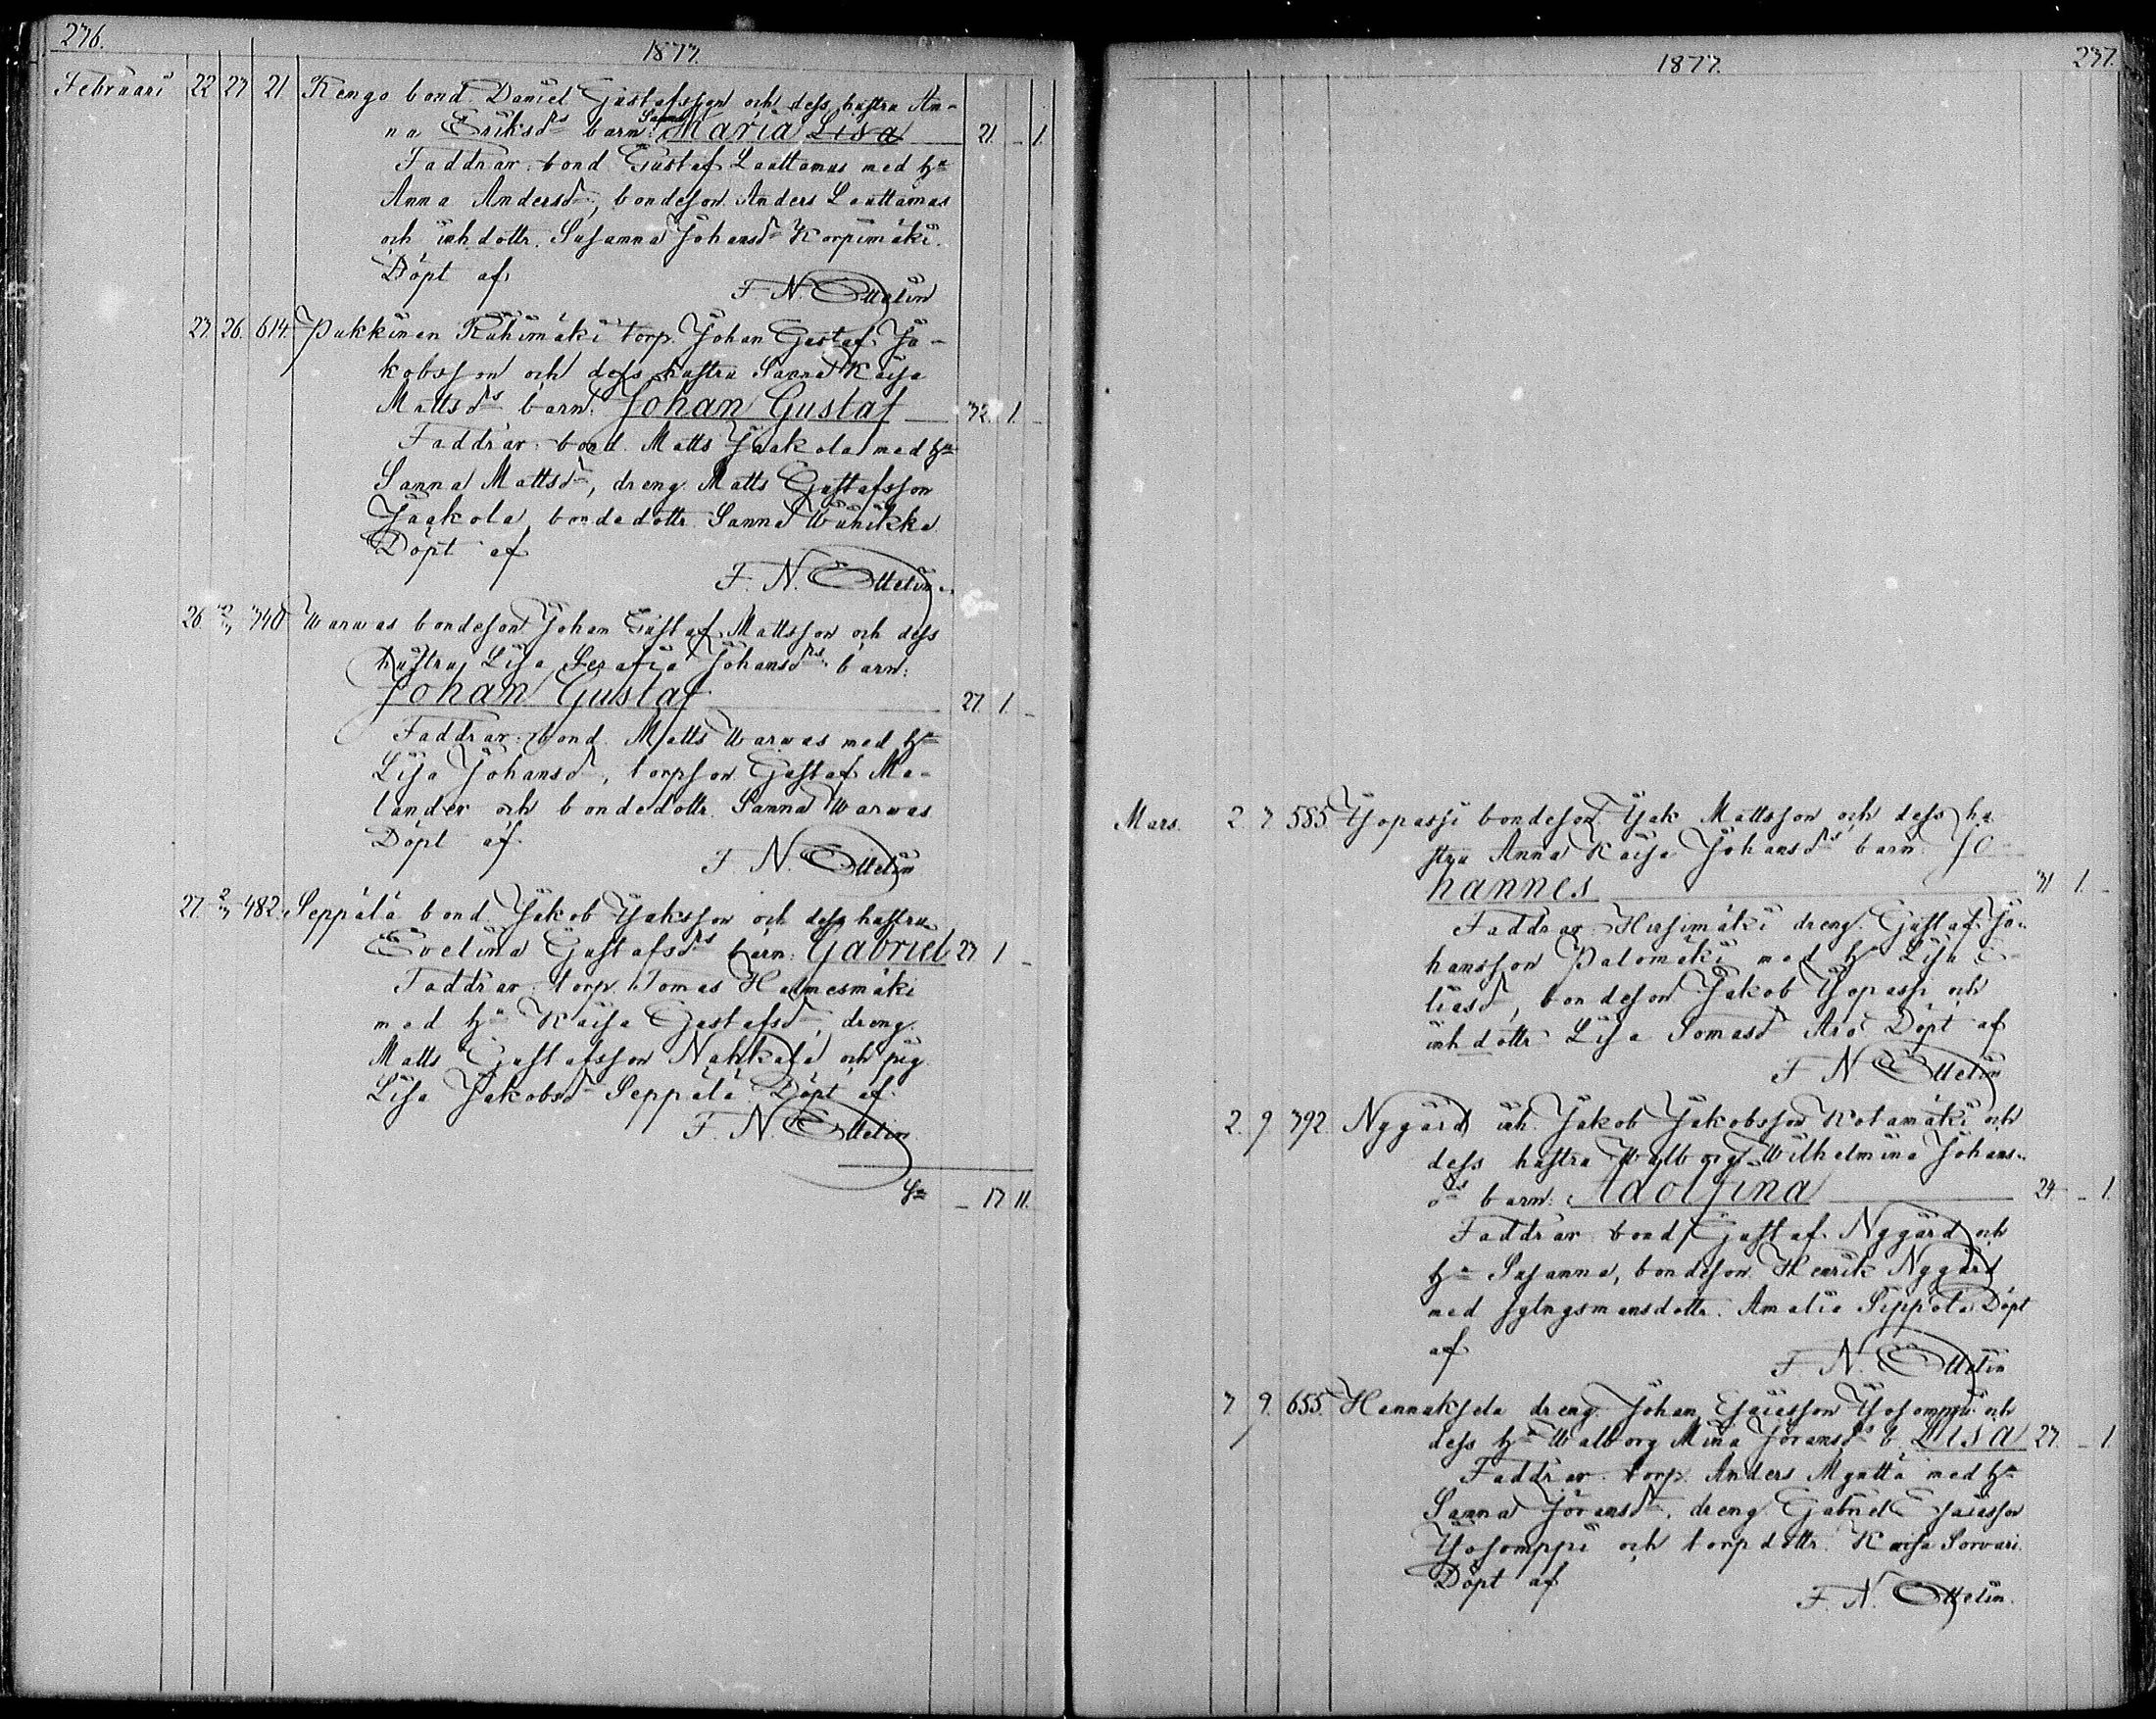 236.
1877.
Februari 22 23 21. Rengo bond. Daniel Gustafsson och dess hustru An-
na Eriksdrs barn: Sanna Maria Lisa 21. - 1.
Faddrar: bond Gustaf Lauttamus med h:u
Anna Andersdr, bondeson Anders Lauttamus
och inh dottr. Susanna Johansdr Korpimäki.
Döpt af
F. N. Ottelin
23. 26. 614. Pukkinen Riihimäki torp. Johan Gustaf Ja-
kobsson och dess hustru Sanna Kaisa
Mattsdrs barn: Johan Gustaf 32. 1. -
Faddrar: bond. Matts Jaakola med h:u
Sanna Mattsdr, dreng Matts Gustafsson
Jaakola, bondedottr. Sanna
Döpt af
F. N. Ottelin.
26. 2/3 340 Warwas bondeson Johan Gustaf Mattsson och dess
hustru Lisa Serafia Johansdrs barn:
Johan Gustaf 27. 1. -
Faddrar: bond. Matts Warwas med h:u
Lisa Johansdr, torpson Gustaf Me-
lander och bondedottr. Sanna Warwas
Döpt af
F. N. Ottelin
27. 2/3 482. Seppälä bond. Jakob Jaksson och dess hustru
Evelina Gustafsdrs barn: Gabriel 23 1 -
Faddrar: torp. Tomas Halmesmäki
med h:u Kaisa Gustafsdr, dreng
Matts Gustafsson Nahkala och pig.
Lisa Jakobsdr Seppälä. Döpt af
F. N. Ottelin.
S:a - 17 11.
1877.
237.
Mars. 2 7 585. Yopassi bondeson Jak Mattsson och dess hu-
stru Anna Kaisa Johansdrs barn: Jo-
hannes 31 1. -
Faddrar: Hirsimäki dreng. Gustaf Jo-
hansson Palomäki med h:u Lisa E-
liasdr, bondeson Jakob Yopassi och
inh dottr Lisa Tomasdr Aro Döpt af
F. N. Ottelin
2. 9 392. Nygård inh. Jakob Jakobsson Kotamäki och
dess hustru Walborg Wilhelmina Johans-
drs barn: Adolfina 24. - 1.
Faddrar: bond Gustaf Nygård och
h:u Susanna, bondeson Henrik Nygård
med sytngsmansdottr. Amalia Sippola Döpt
af
F. N. Ottelin
3 9. 655. Hannuksela dreng. Johan Esaiesson Yosomppi och
dess h:u Walborg Mina Joransdrs b. Lisa 23. - 1.
Faddrar: torp. Anders Myntti med h:u
Sanna Joransdr, dreng Gabriel Esaiesson
Yosomppi och torp dottr. Kaisa Sorvari.
Döpt af
F. N. Ottelin.